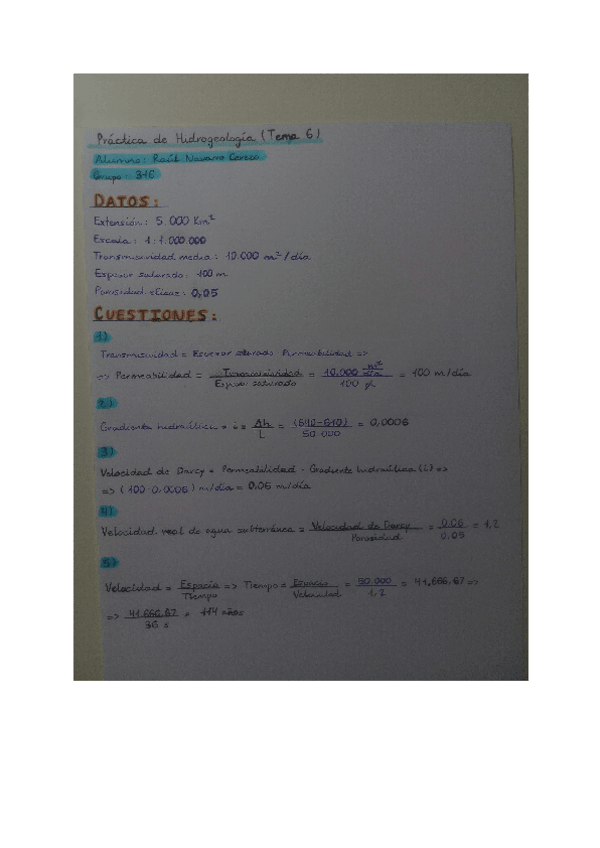 Práctica de Hidrogeología (Tema 6)
Alumno: Raúl Navarro
Grupo: 316
DATOS:
Extensión: 5.000 Km²
Escala: 1:1.000.000
Transmisividad media: 10.000 m²/día
Espesor saturado: 100 m
Porosidad eficaz: 0,05
CUESTIONES:
1)
Transmisividad = Espesor saturado · Permeabilidad =>
=> Permeabilidad = Transmisividad / Espesor saturado = 10.000 m²/día / 100 = 100 m/día
2)
Gradiente hidráulico = i = Δh / L = (640-610) / 50.000 = 0,0006
3)
Velocidad de Darcy = Permeabilidad · Gradiente hidráulico (i) =>
=> (100 · 0,0006) m/día = 0,06 m/día
4)
Velocidad real de agua subterránea = Velocidad de Darcy / Porosidad = 0,06 / 0,05 = 1,2
5)
Velocidad = Espacio / Tiempo => Tiempo = Espacio / Velocidad = 50.000 / 1,2 = 41.666,67 =>
=> 41.666,67 / = 114 años